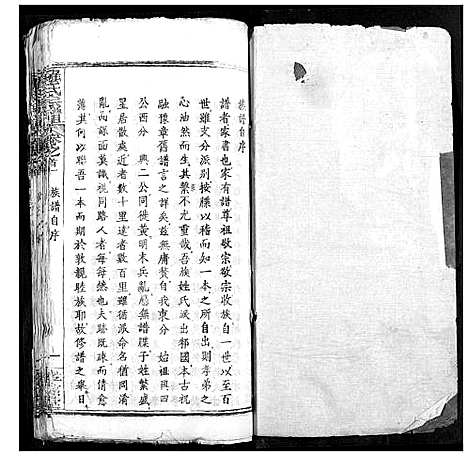 族譜自序
譜者家書也家有譜尊祖敬宗敬宗收族自一世以至百
世雖支分派别按牒以稽知一本之所自出則孝弟之
心油然而生其繫不尤重哉吾族姓氏派出祁國本古祝
融後章舊譜言之詳矣兹無庸贅自我東分 始祖興四
公酉分 興二公同徙黄明末兵亂熸無譜牒子姓繁盛
星居散處近者數十里遠者數百里雖循派命名猶罔淆
亂而面莫識視同路人者每每然也夫跡既踈而情愈
薄其何以聯吾一本而期於敦親睦族耶故修譜之舉日
族譜自序